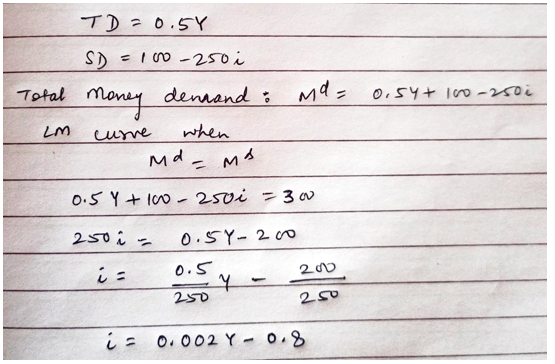 TD = 0.5Y
SD = 100 - 250i
Total money demand : Md = 0.5Y + 100 - 250i
LM curve when
Md = Ms
0.5Y + 100 - 250i = 300
250i = 0.5Y - 200
i = 0.5/250 Y - 200/250
i = 0.002Y - 0.8